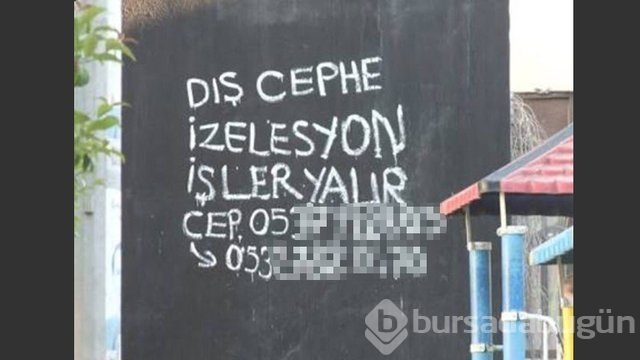 DIŞ CEPHE
İZELESYON
İŞLER YALIR
CEP. 053
053
bursadabugün